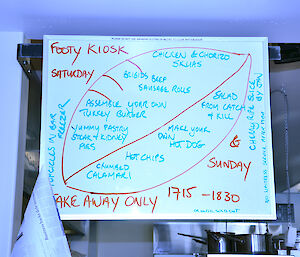 FOOTY KIOSK
SATURDAY
CHICKEN & CHORIZO
SKUAS
BLIGIDS BEEF
SAUSAGE ROLLS
ASSEMBLE YOUR OWN
TURKEY BURGER
SALAD
FROM CATCH
& KILL
YUMMY PASTRY
STEAK & KIDNEY
PIES
MAKE YOUR
OWN
HOT DOG
HOT CHIPS
CRUMBED
CALAMARI
&
SUNDAY
ICYCLES IN BAR
FREEZER
CHERRY RIPE SLICE
BY JON
TAKE AWAY ONLY 1715-1830